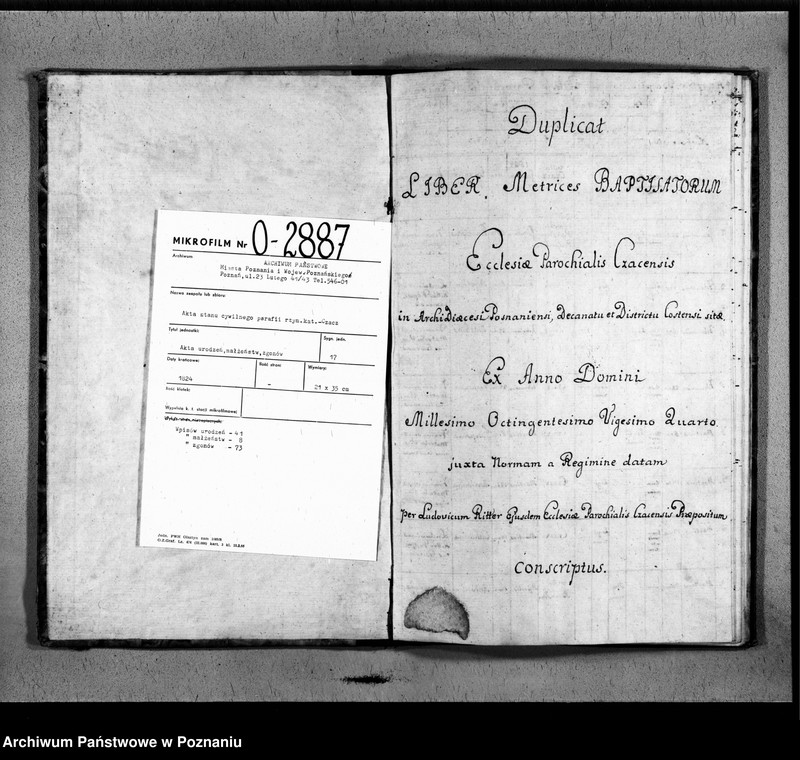 MIKROFILM Nr O-2887
Archiwum
ARCHIWUM PAŃSTWOWE
Miasta Poznania i Wojew. Poznańskiego
Poznań, ul. 23 Lutego 41/43 Tel. 546-01
Nazwa zespołu lub zbioru:
Akta stanu cywilnego parafii rzym.kat.-Czacz
Tytuł jednostki:
Sygn. jedn.
Akta urodzeń, małżeństw, zgonów
17
Daty krańcowe:
Ilość stron:
Wymiary:
1824
-
21 x 35 cm
Ilość klatek:
Wypełnia k. t. stacji mikrofilmowej
Wpisów urodzeń - 41
" małżeństw - 8
" zgonów - 73
Duplicat
LIBER Metrices BAPTISATORUM
Ecclesiæ Parochialis Czacensis
in ArchiDiæcesi Posnaniensi, Decanatu et Districtu Costensi sitæ
Ex Anno Domini
Millesimo Octingentesimo Vigesimo Quarto.
juxta Normam a Regimine datam
per Ludovicum Ritter Ejusdem Ecclesiæ Parochialis Czacensis Præpositum
Conscriptus.
Archiwum Państwowe w Poznaniu